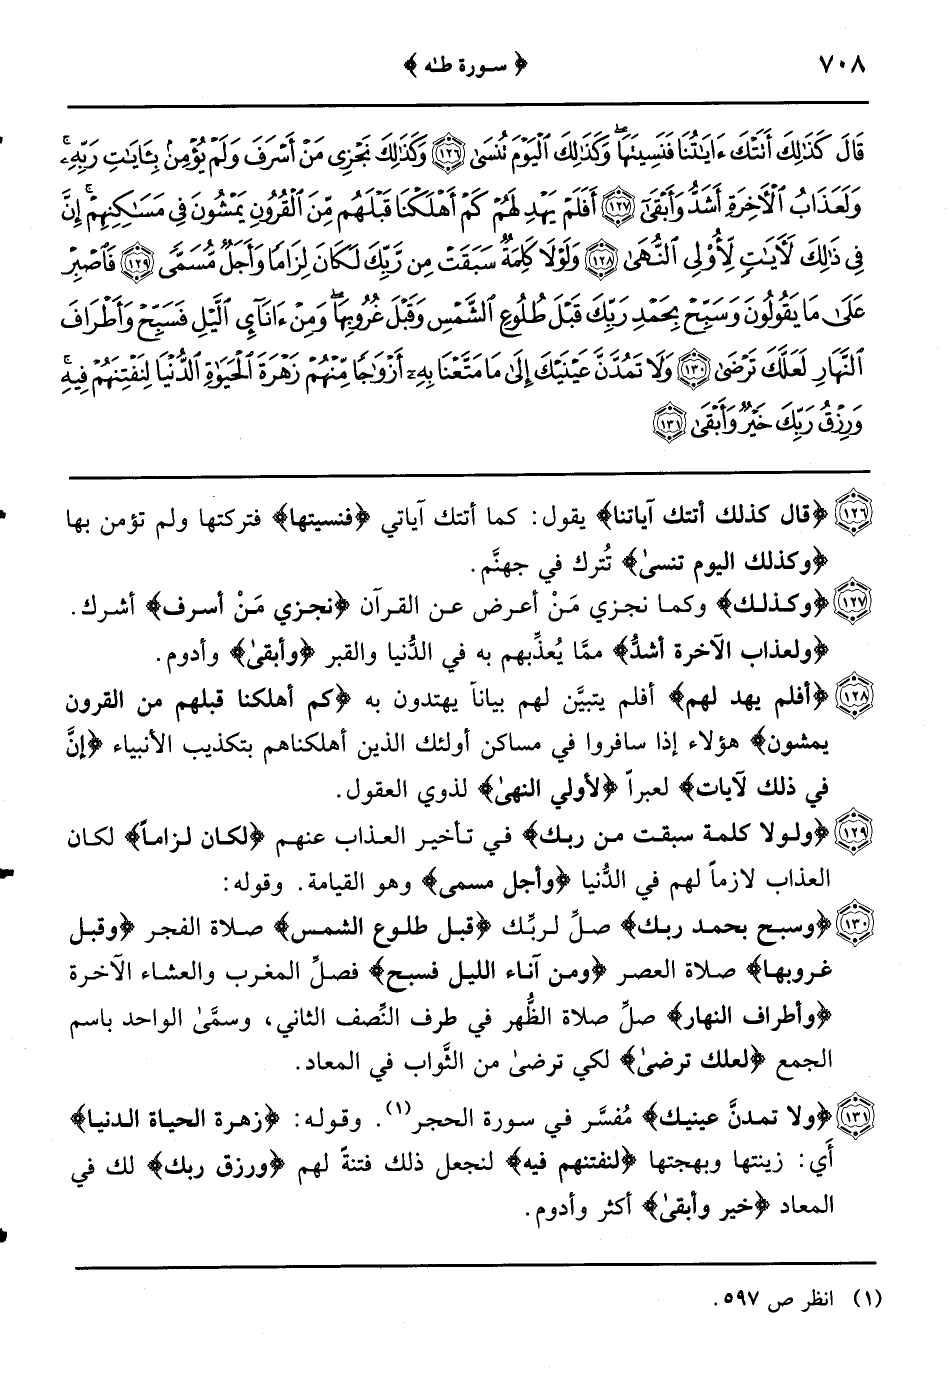 ٧٠٨ ﴿ سورة طـٰه ﴾
قَالَ كَذَٰلِكَ أَتَتْكَ ءَايَٰتُنَا فَنَسِيتَهَا ۖ وَكَذَٰلِكَ ٱلْيَوْمَ تُنسَىٰ ١٢٦ وَكَذَٰلِكَ نَجْزِى مَنْ أَسْرَفَ وَلَمْ يُؤْمِنۢ بِـَٔايَٰتِ رَبِّهِۦ ۚ
وَلَعَذَابُ ٱلْأَخِرَةِ أَشَدُّ وَأَبْقَىٰٓ ١٢٧ أَفَلَمْ يَهْدِ لَهُمْ كَمْ أَهْلَكْنَا قَبْلَهُم مِّنَ ٱلْقُرُونِ يَمْشُونَ فِى مَسَٰكِنِهِمْ ۗ إِنَّ
فِى ذَٰلِكَ لَأَيَٰتٍ لِّأُوْلِى ٱلنُّهَىٰ ١٢٨ وَلَوْلَا كَلِمَةٌ سَبَقَتْ مِن رَّبِّكَ لَكَانَ لِزَامًا وَأَجَلٌ مُّسَمًّى ١٢٩ فَٱصْبِرْ
عَلَىٰ مَا يَقُولُونَ وَسَبِّحْ بِحَمْدِ رَبِّكَ قَبْلَ طُلُوعِ ٱلشَّمْسِ وَقَبْلَ غُرُوبِهَا ۖ وَمِنْ ءَانَآئِ ٱلَّيْلِ فَسَبِّحْ وَأَطْرَافَ
ٱلنَّهَارِ لَعَلَّكَ تَرْضَىٰ ١٣٠ وَلَا تَمُدَّنَّ عَيْنَيْكَ إِلَىٰ مَا مَتَّعْنَا بِهِۦٓ أَزْوَٰجًا مِّنْهُمْ زَهْرَةَ ٱلْحَيَوٰةِ ٱلدُّنْيَا لِنَفْتِنَهُمْ فِيهِ ۚ
وَرِزْقُ رَبِّكَ خَيْرٌ وَأَبْقَىٰ ١٣١
١٢٦ ﴿قال كذلك أتتك آياتنا﴾ يقول: كما أتتك آياتي ﴿فنسيتها﴾ فتركتها ولم تؤمن بها
﴿وكذلك اليوم تنسىٰ﴾ تُترك في جهنَّم.
١٢٧ ﴿وكذلك﴾ وكما نجزي مَنْ أعرض عن القرآن ﴿نجزي مَنْ أسرف﴾ أشرك.
﴿ولعذاب الآخرة أشدُّ﴾ ممَّا يُعذِّبهم به في الدُّنيا والقبر ﴿وأبقىٰ﴾ وأدوم.
١٢٨ ﴿أفلم يهد لهم﴾ أفلم يتبيَّن لهم بياناً يهتدون به ﴿كم أهلكنا قبلهم من القرون
يمشون﴾ هؤلاء إذا سافروا في مساكن أولئك الذين أهلكناهم بتكذيب الأنبياء ﴿إنَّ
في ذلك لآيات﴾ لعبراً ﴿لأولي النهىٰ﴾ لذوي العقول.
١٢٩ ﴿ولولا كلمة سبقت من ربك﴾ في تأخير العذاب عنهم ﴿لكان لزاماً﴾ لكان
العذاب لازماً لهم في الدُّنيا ﴿وأجل مسمى﴾ وهو القيامة. وقوله:
١٣٠ ﴿وسبح بحمد ربك﴾ صلِّ لربِّك ﴿قبل طلوع الشمس﴾ صلاة الفجر ﴿وقبل
غروبها﴾ صلاة العصر ﴿ومن آناء الليل فسبح﴾ فصلِّ المغرب والعشاء الآخرة
﴿وأطراف النهار﴾ صلِّ صلاة الظُّهر في طرف النِّصف الثاني، وسمَّىٰ الواحد باسم
الجمع ﴿لعلك ترضىٰ﴾ لكي ترضىٰ من الثَّواب في المعاد.
١٣١ ﴿ولا تمدنَّ عينيك﴾ مُفسَّر في سورة الحجر(١). وقوله: ﴿زهرة الحياة الدنيا﴾
أَي: زينتها وبهجتها ﴿لنفتنهم فيه﴾ لنجعل ذلك فتنةً لهم ﴿ورزق ربك﴾ لك في
المعاد ﴿خير وأبقىٰ﴾ أكثر وأدوم.
(١) انظر ص ٥٩٧.